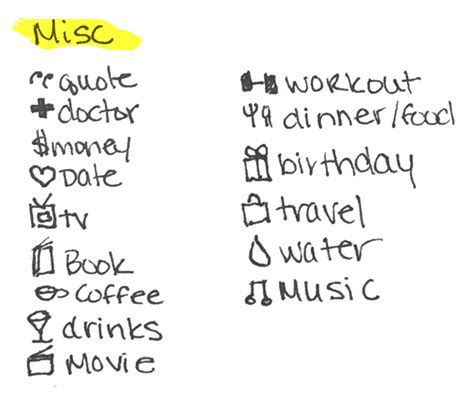 Misc
quote
doctor
$money
Date
tv
Book
coffee
drinks
Movie
workout
dinner/food
birthday
travel
water
Music